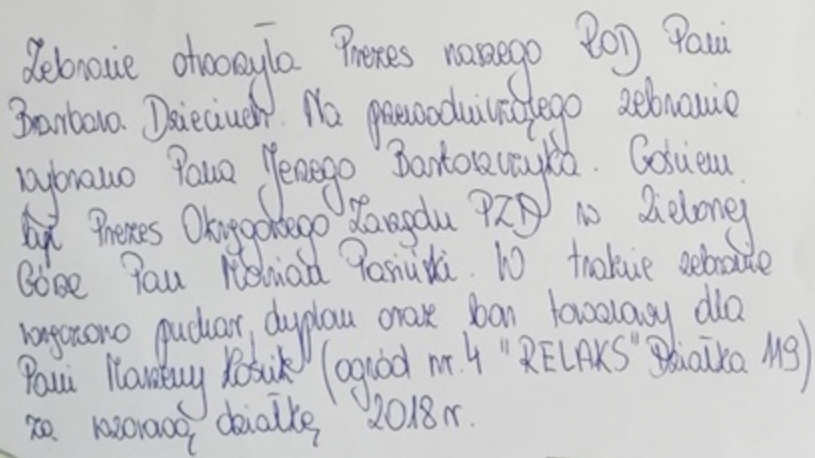 Zebranie otworzyła Prezes naszego ROD Pani
Barbara Dzieciuch. Na przewodniczącego zebrania
wybrano Pana Jerzego Bartoszczyka. Gościem
był Prezes Okręgowego Zarządu PZD w Zielonej
Górze Pan Marian Pasiński. W trakcie zebrania
wręczono puchar, dyplom oraz bon towarowy dla
Pani Marzeny Kośnik (ogród nr. 4 "RELAKS" Działka 119)
za wzorową działkę 2018 r.